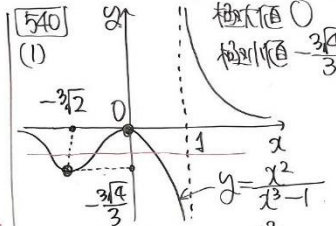 540
(1)
y
極大値 0
極小値 -∛4/3
-∛2
0
1
x
-∛4/3
y = x²/(x³-1)